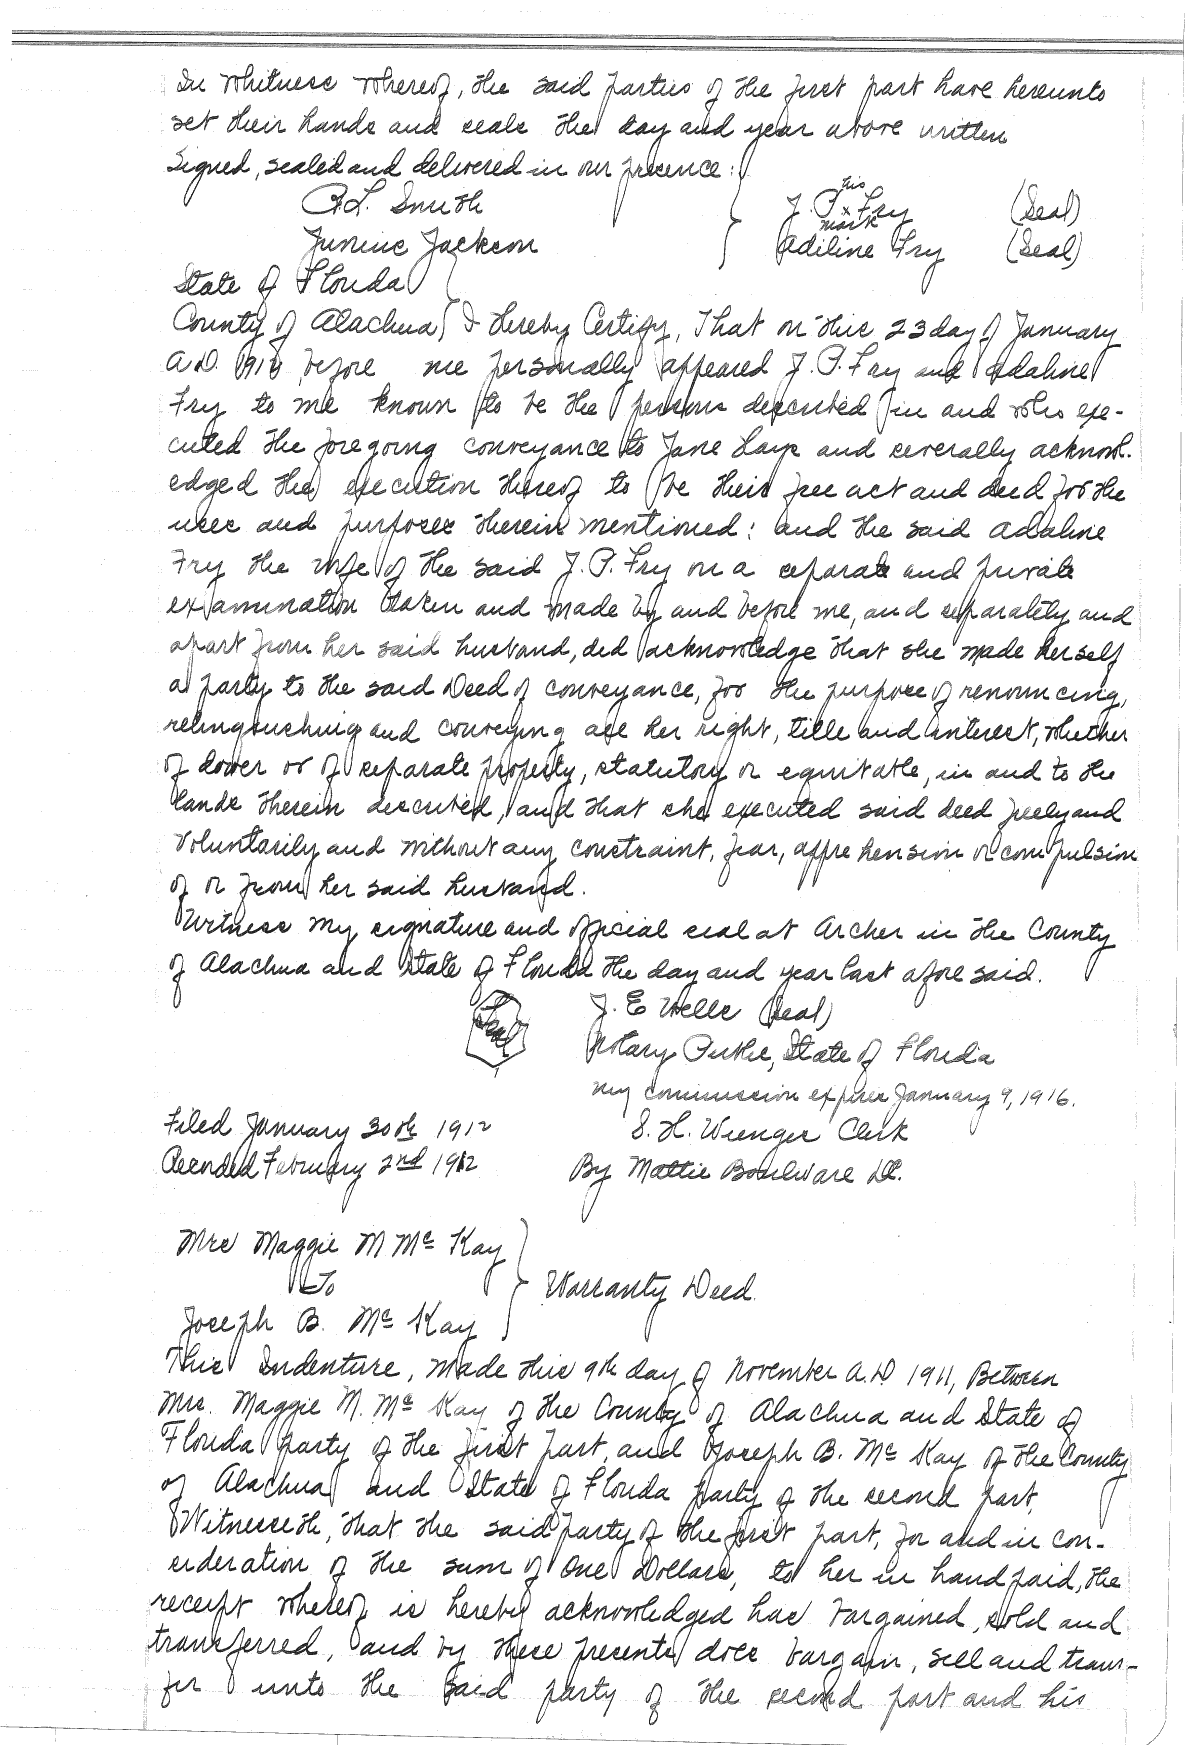 In Whitness Whereof, the said parties of the first part have hereunto
set their hands and seals the day and year above written
Signed, sealed and delivered in our presence:
his
R.L. Smith } J. P. x Fry (Seal)
mark
Junius Jackson Adiline Fry (Seal)
State of Florida
County of Alachua } I Hereby Certify, That on this 23 day of January
A.D. 1912 before me personally appeared J. P. Fry and Adaline
Fry to me known to be the persons described in and who exe-
cuted the foregoing conveyance to Jane Hays and severally acknowl-
edged the execution thereof to be their free act and deed for the
uses and purposes therein mentioned: and the said Adaline
Fry the wife of the said J. P. Fry on a separate and private
examination taken and made by and before me, and separately and
apart from her said husband, did acknowledge that she made herself
a party to the said Deed of conveyance, for the purpose of renouncing,
relinquishing and conveying all her right, title and interest, whether
of dower or of separate property, statutory or equitable, in and to the
lands therein described, and that she executed said deed freely and
voluntarily and without any constraint, fear, apprehension or compulsion
of or from her said husband.
Witness my signature and official seal at Archer in the County
of Alachua and State of Florida the day and year last afore said.
Seal J. E Wells (Seal)
Notary Public, State of Florida
My commission expires January 9, 1916.
Filed January 30th 1912 S. H. Wienges Clerk
Recorded February 2nd 1912 By Mattie Boulware D.C.
Mrs Maggie M McKay
To } Warranty Deed
Joseph B. McKay
This Indenture, made this 9th day of November A.D 1911, Between
Mrs. Maggie M. McKay of the County of Alachua and State of
Florida party of the first part, and Joseph B. McKay of the County
of Alachua and State of Florida party of the second part,
Witnesseth, that the said party of the first part, for and in con-
sideration of the sum of One Dollars, to her in hand paid, the
receipt whereof is hereby acknowledged has bargained, sold and
transferred, and by these presents does bargain, sell and trans-
fer unto the said party of the second part and his